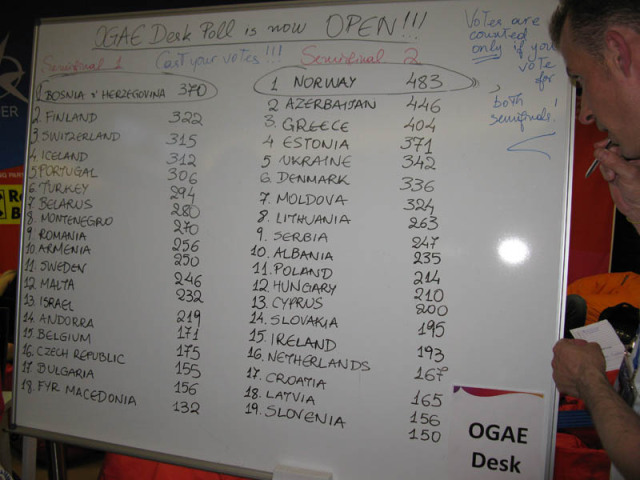 OGAE Desk Poll is now OPEN!!!
Cast your votes!!!
Semifinal 1
1. BOSNIA & HERZEGOVINA 370
2. FINLAND 322
3. SWITZERLAND 315
4. ICELAND 312
5. PORTUGAL 306
6. TURKEY 294
7. BELARUS 280
8. MONTENEGRO 270
9. ROMANIA 256
10. ARMENIA 250
11. SWEDEN 246
12. MALTA 232
13. ISRAEL 219
14. ANDORRA 171
15. BELGIUM 175
16. CZECH REPUBLIC 155
17. BULGARIA 156
18. FYR MACEDONIA 132
Semifinal 2
1 NORWAY 483
2 AZERBAIJAN 446
3. GREECE 404
4 ESTONIA 371
5 UKRAINE 342
6 DENMARK 336
7. MOLDOVA 324
8. LITHUANIA 263
9. SERBIA 247
10. ALBANIA 235
11. POLAND 214
12. HUNGARY 210
13. CYPRUS 200
14. SLOVAKIA 195
15. IRELAND 193
16. NETHERLANDS 167
17. CROATIA 165
18. LATVIA 156
19. SLOVENIA 150
Votes are
counted
only if you
vote
for
both
semifinals!
OGAE
Desk